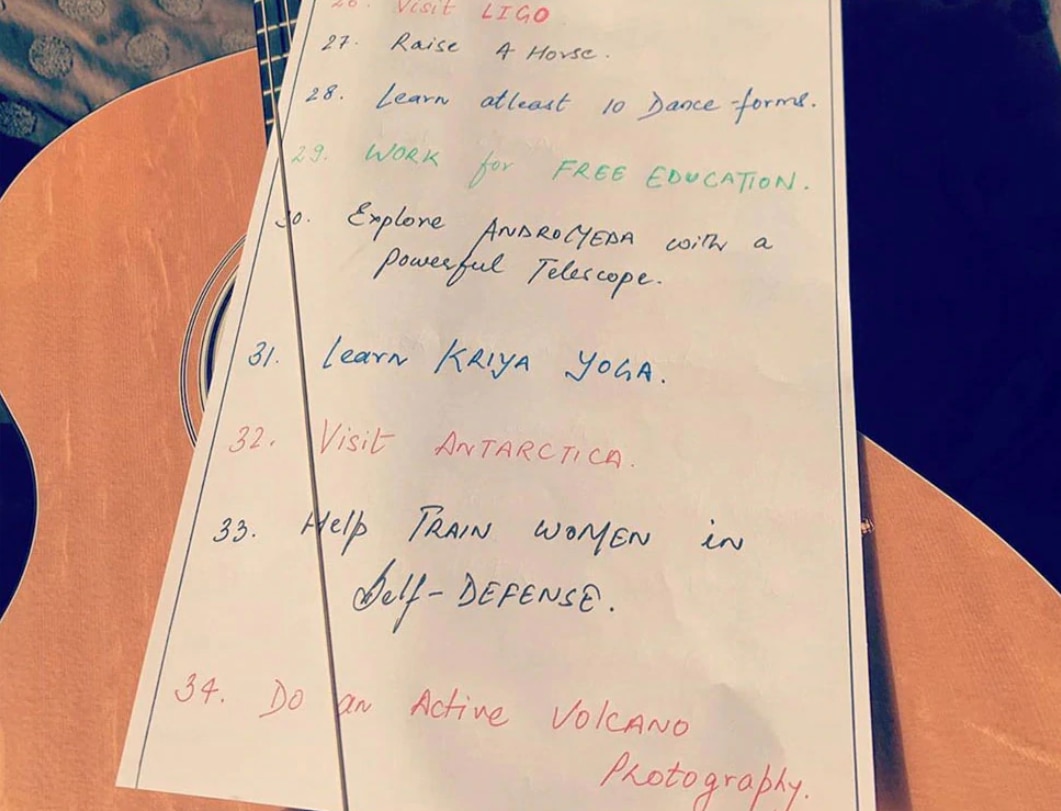 26. Visit LIGO
27. Raise A Horse.
28. Learn atleast 10 Dance-forms.
29. WORK for FREE EDUCATION.
30. Explore ANDROMEDA with a
powerful Telescope.
31. Learn KRIYA YOGA.
32. Visit ANTARCTICA.
33. Help TRAIN WOMEN in
Self-DEFENSE.
34. Do an Active VOLCANO
Photography.